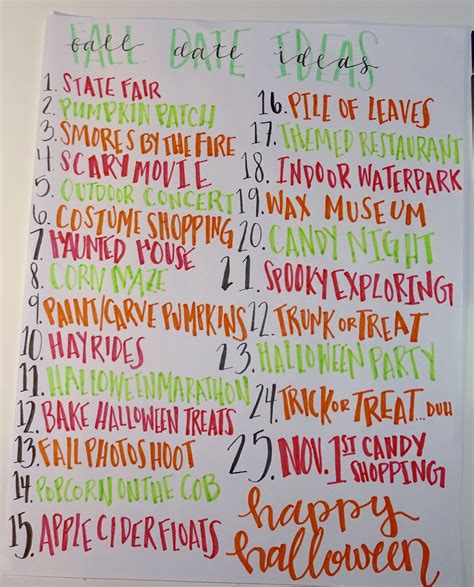 FALL DATE IDEAS
fall date ideas
1. STATE FAIR
2. PUMPKIN PATCH
3. SMORES BY THE FIRE
4. SCARY MOVIE
5. OUTDOOR CONCERT
6. COSTUME SHOPPING
7. HAUNTED HOUSE
8. CORN MAZE
9. PAINT/CARVE PUMPKINS
10. HAYRIDES
11. HALLOWEEN MARATHON
12. BAKE HALLOWEEN TREATS
13. FALL PHOTOSHOOT
14. POPCORN ON THE COB
15. APPLE CIDER FLOATS
16. PILE OF LEAVES
17. THEMED RESTAURANT
18. INDOOR WATERPARK
19. WAX MUSEUM
20. CANDY NIGHT
21. SPOOKY EXPLORING
22. TRUNK OR TREAT
23. HALLOWEEN PARTY
24. TRICK OR TREAT...DUH
25. NOV. 1ST CANDY
SHOPPING
happy
halloween